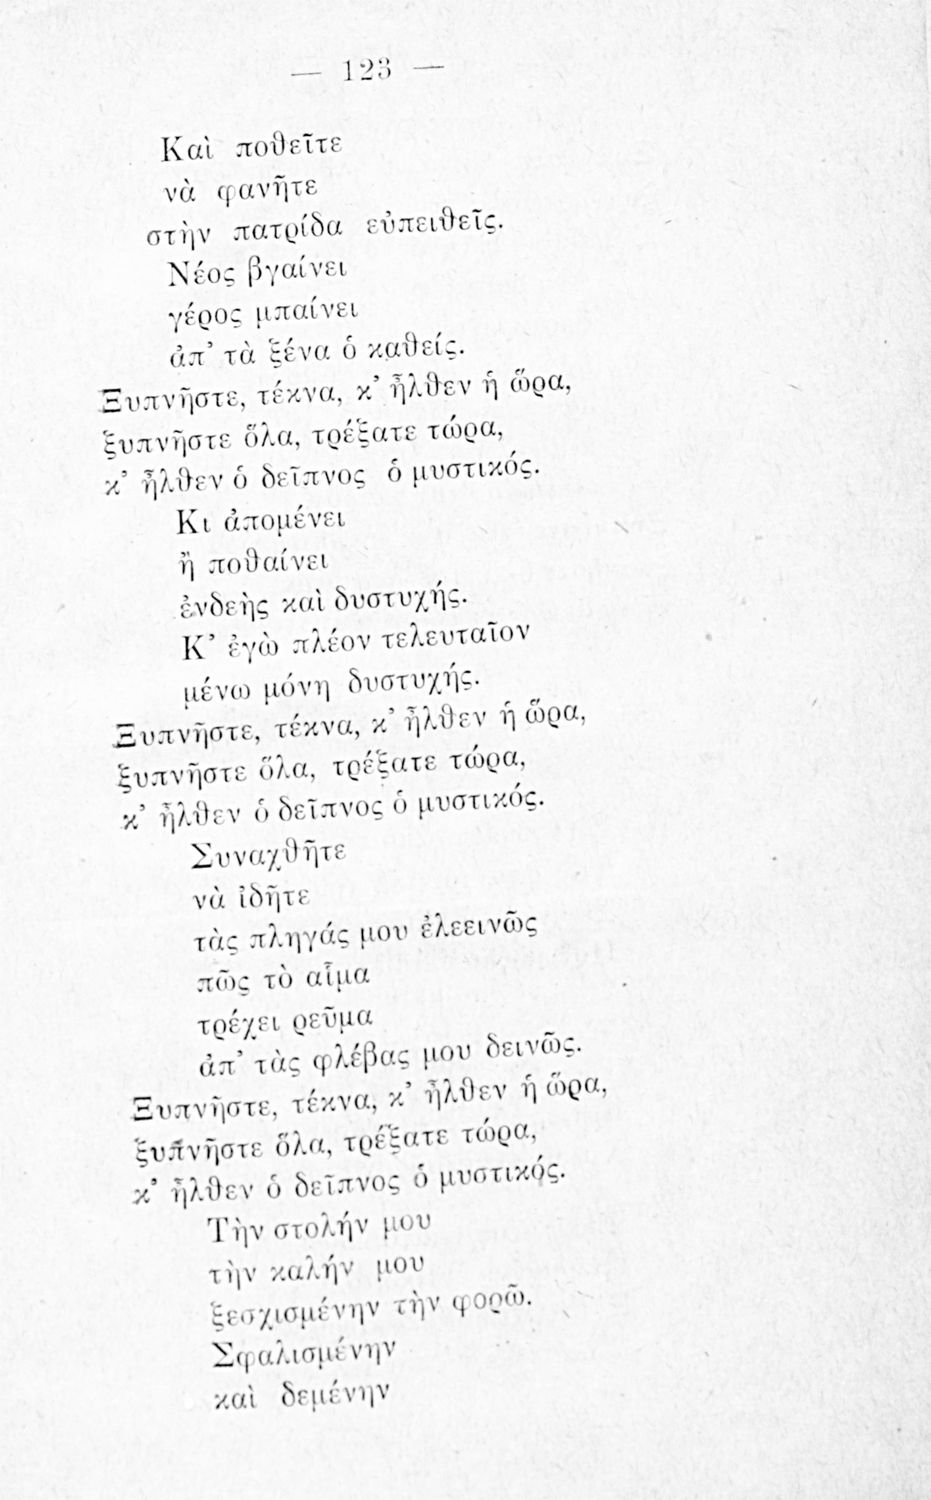 — 123 —
Καὶ ποθεῖτε
νὰ φανῆτε
στὴν πατρίδα εὐπειθεῖς.
Νέος βγαίνει
γέρος μπαίνει
ἀπ' τὰ ξένα ὁ καθείς.
Ξυπνῆστε, τέκνα, κ' ἦλθεν ἡ ὥρα,
ξυπνῆστε ὅλα, τρέξατε τώρα,
κ' ἦλθεν ὁ δεῖπνος ὁ μυστικός.
Κι ἀπομένει
ἢ ποθαίνει
ἐνδεὴς καὶ δυστυχής.
Κ' ἐγὼ πλέον τελευταῖον
μένω μόνη δυστυχής.
Ξυπνῆστε, τέκνα, κ' ἦλθεν ἡ ὥρα,
ξυπνῆστε ὅλα, τρέξατε τώρα,
κ' ἦλθεν ὁ δεῖπνος ὁ μυστικός.
Συναχθῆτε
νὰ ἰδῆτε
τὰς πληγάς μου ἐλεεινῶς
πῶς τὸ αἷμα
τρέχει ρεῦμα
ἀπ' τὰς φλέβας μου δεινῶς.
Ξυπνῆστε, τέκνα, κ' ἦλθεν ἡ ὥρα,
ξυπνῆστε ὅλα, τρέξατε τώρα,
κ' ἦλθεν ὁ δεῖπνος ὁ μυστικός.
Τὴν στολήν μου
τὴν καλήν μου
ξεσχισμένην τὴν φορῶ.
Σφαλισμένην
καὶ δεμένην